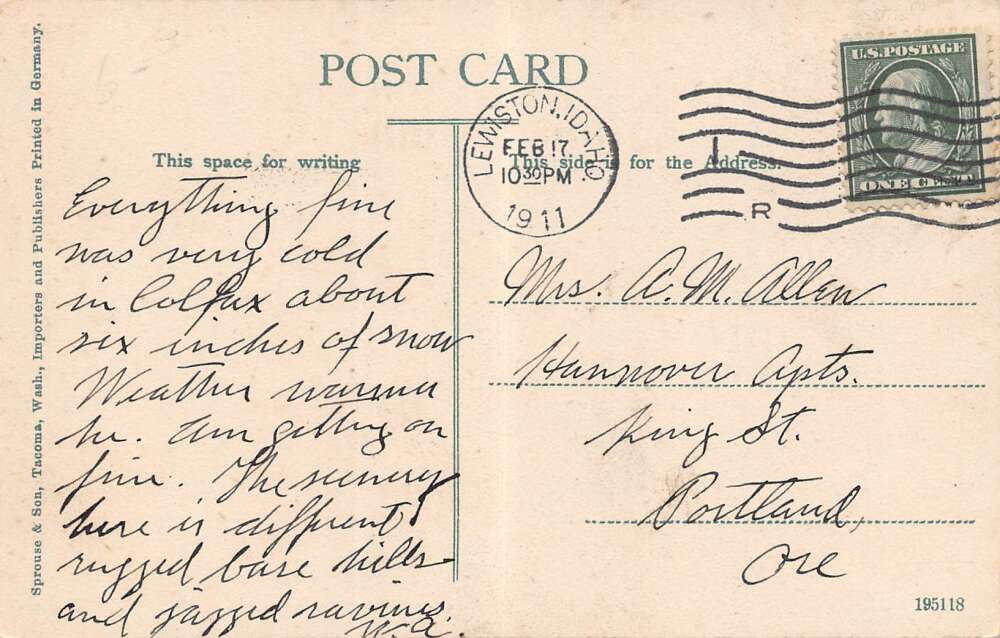 POST CARD
This space for writing
This side is for the Address.
LEWISTON, IDAHO.
FEB 17.
10 30 PM
1911
R
U.S. POSTAGE
ONE CENT
Everything fine
was very cold
in Colfax about
six inches of snow
Weather warmer
he. Am getting on
fine. The scenery
here is different
rugged base hills
and jagged ravines
W.A.
Mrs. A. M. Allen
Hannover Apts.
King St.
Portland,
Ore
Sprouse & Son, Tacoma, Wash., Importers and Publishers Printed in Germany.
195118